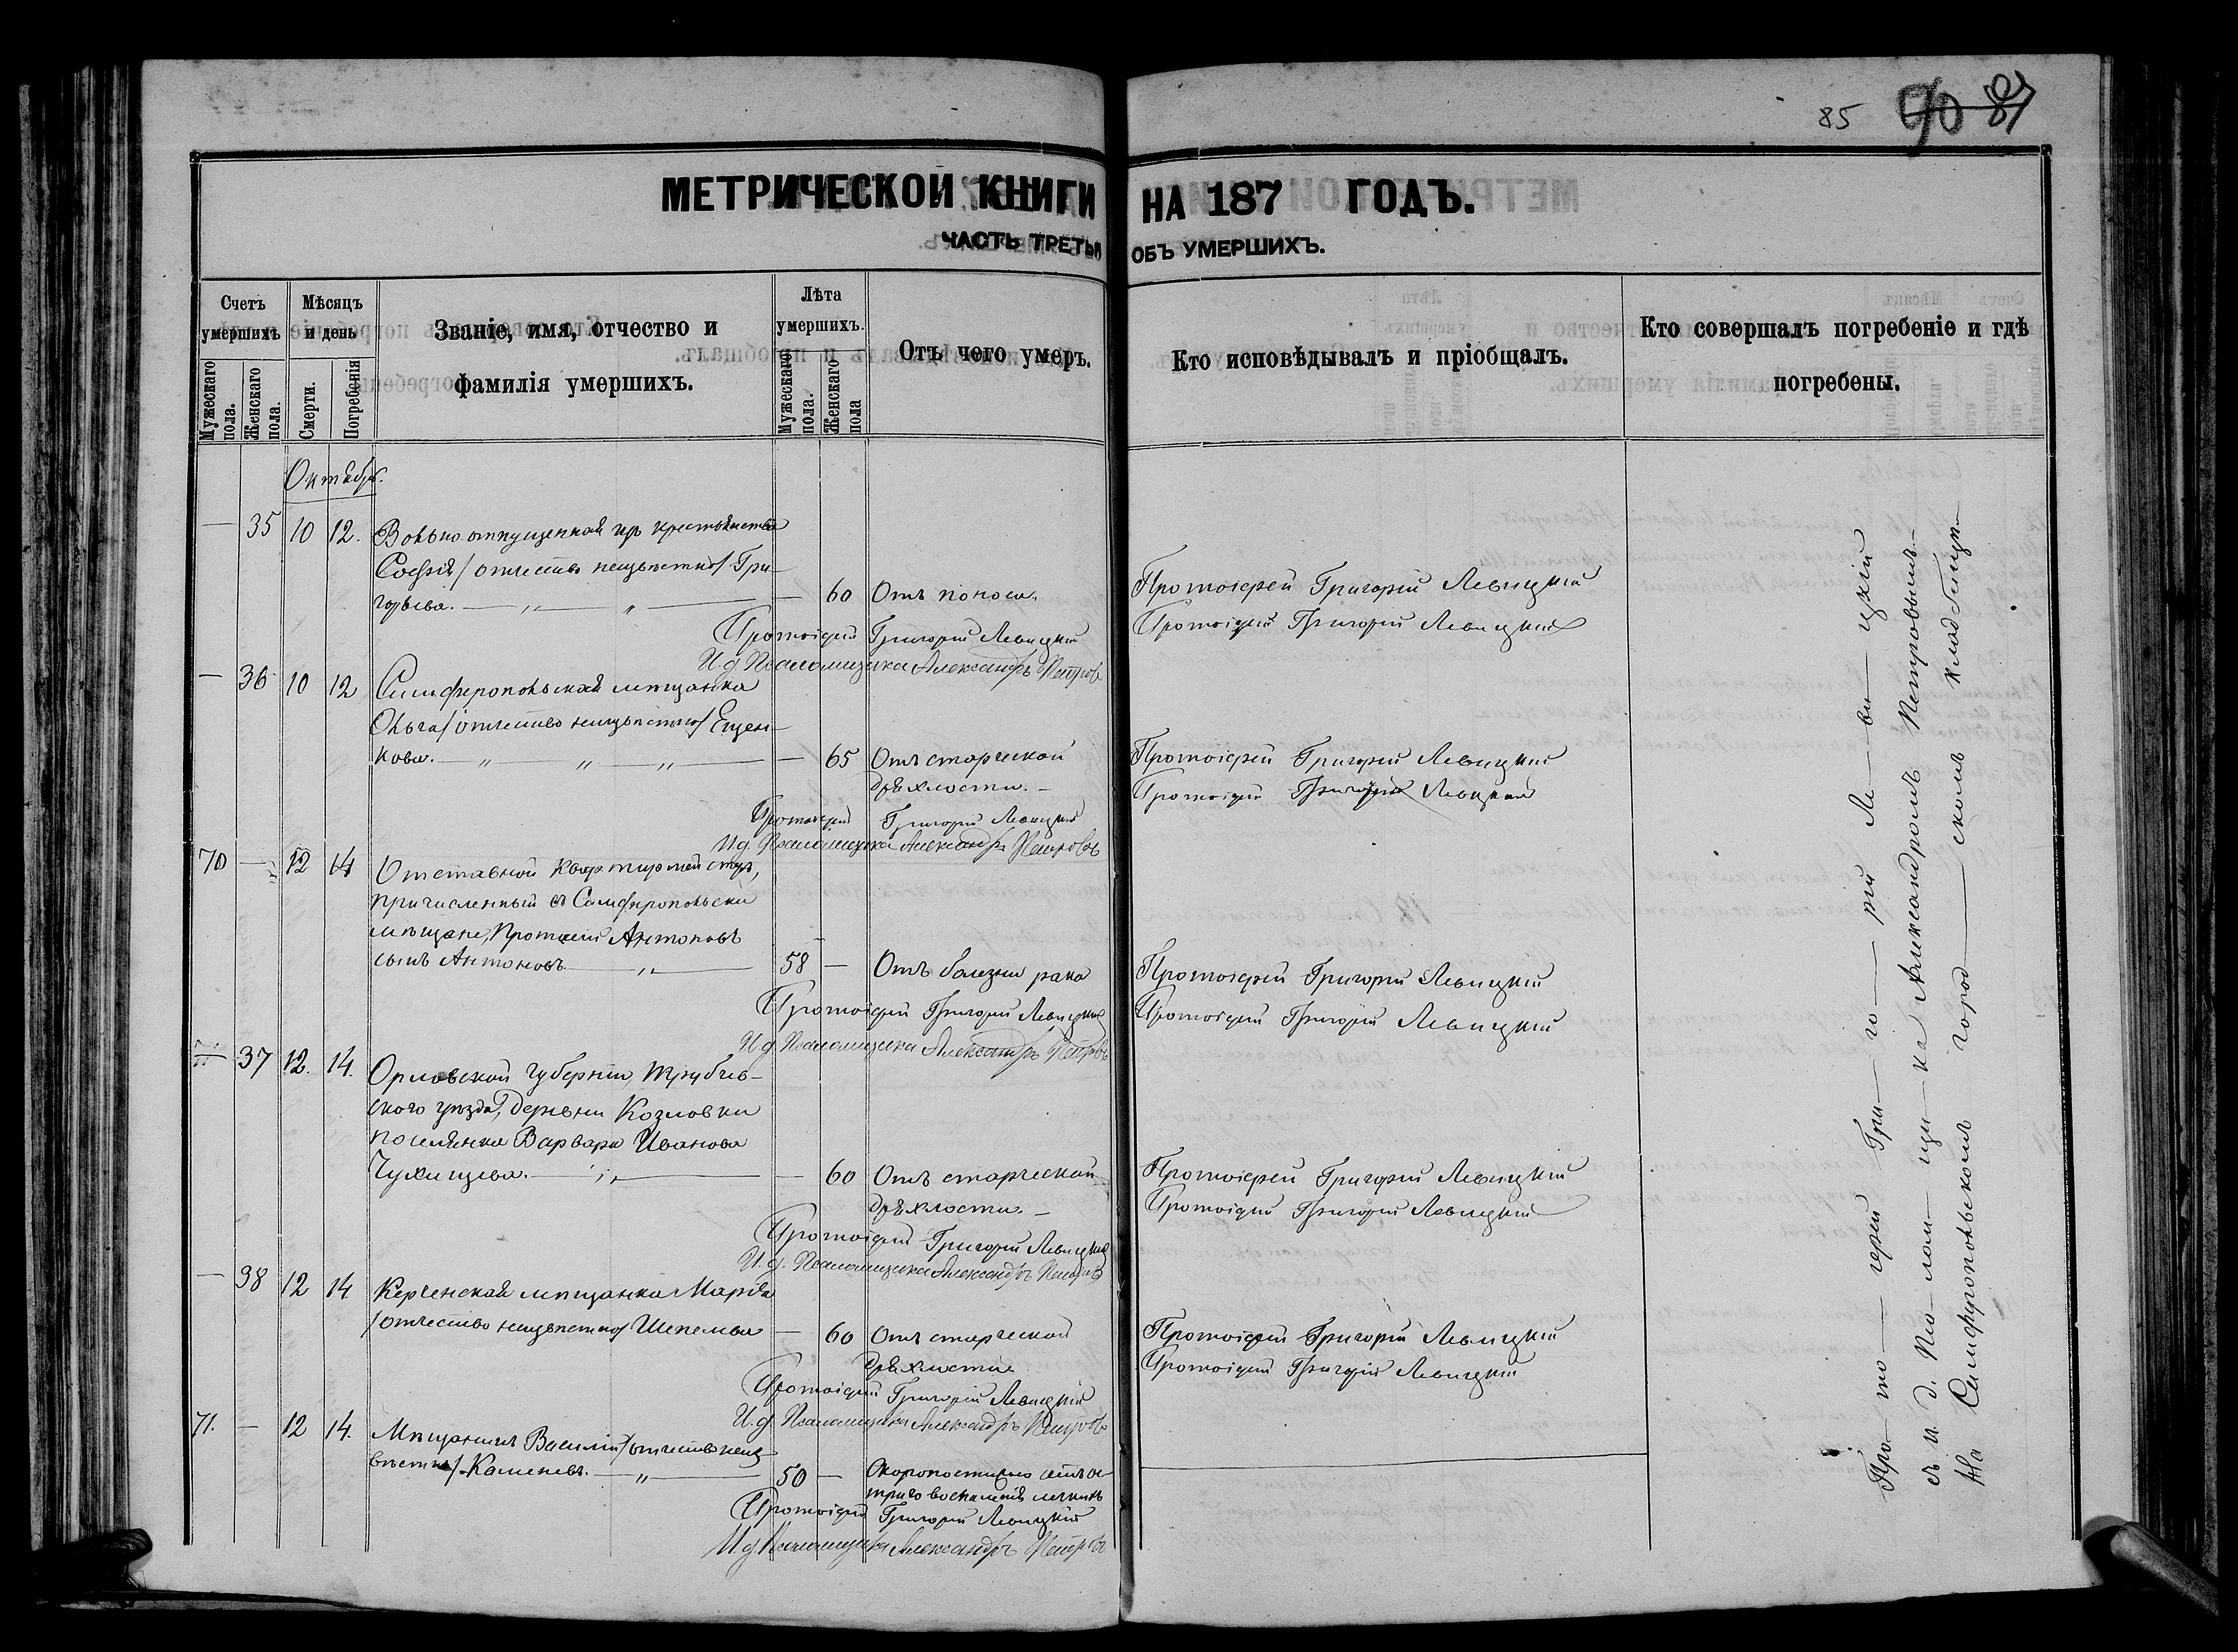 85 90 87
МЕТРИЧЕСКОЙ КНИГИ НА 187 ГОДЪ.
ЧАСТЬ ТРЕТЬЯ ОБЪ УМЕРШИХЪ.
Счетъ умершихъ
Мужескаго пола.
Женскаго пола.
Мѣсяцъ и день
Смерти.
Погребенія
Званіе, имя, отчество и фамилія умершихъ.
Лѣта умершихъ.
Мужескаго пола.
Женскаго пола
Отъ чего умеръ.
Кто исповѣдывалъ и пріобщалъ.
Кто совершалъ погребеніе и гдѣ погребены.
Октябрь.
— 35 10 12. Вольноотпущенная изъ крестьянства
Софія /отчество неизвѣстно/ Гри-
горьева. — „ — „ — — 60 Отъ поноса. Протоіерей Григорій Левицкій
Протоіерей Григорій Левицкій Протоіерей Григорій Левицкій
И. д. Псаломщика Александръ Петровъ
— 36 10 12 Симферопольская мѣщанка
Ольга /отчество неизвѣстно/ Ещен-
кова. — „ „ — „ — — 65 Отъ старческой Протоіерей Григорій Левицкій
дряхлости. — Протоіерей Григорій Левицкій
Протоіерей Григорій Левицкій
И. д. Псаломщика Александръ Петровъ
70 — 12 14 Отставной квартирмейстръ,
причисленный въ Симферопольскіе
мѣщане, Протасій Антоновъ
сынъ Антоновъ. — „ — 58 — Отъ болезни рака Протоіерей Григорій Левицкій
Протоіерей Григорій Левицкій Протоіерей Григорій Левицкій
И. д. Псаломщика Александръ Петровъ
— 37 12. 14. Орловской губерніи, Трубчев-
ского уѣзда, деревни Козловки
поселянка Варвара Иванова
Чухнцева. — „ — — 60 Отъ старческой Протоіерей Григорій Левицкій
дряхлости. — Протоіерей Григорій Левицкій
Протоіерей Григорій Левицкій
И. д. Псаломщика Александръ Петровъ
— 38 12 14 Керченская мѣщанка Марія
/отчество неизвѣстно/ Шепемва — 60 Отъ старческой Протоіерей Григорій Левицкій
дряхлости Протоіерей Григорій Левицкій
Протоіерей Григорій Левицкій
И. д. Псаломщика Александръ Петровъ
71. — 12 14. Мѣщанинъ Василій /отчество неиз-
вѣстно/ Каменевъ. — „ — 50 — Скоропостижно отъ ос-
траго воспаленія легкихъ
Протоіерей Григорій Левицкій
И. д. Псаломщика Александръ Петровъ
Про — то — іерей Гри — го — рій Ле — ви — цкій
съ и. д. Пса — лом — щи — ка Александромъ Петровымъ —
На Симферопольскомъ город — скомъ кладбищѣ —